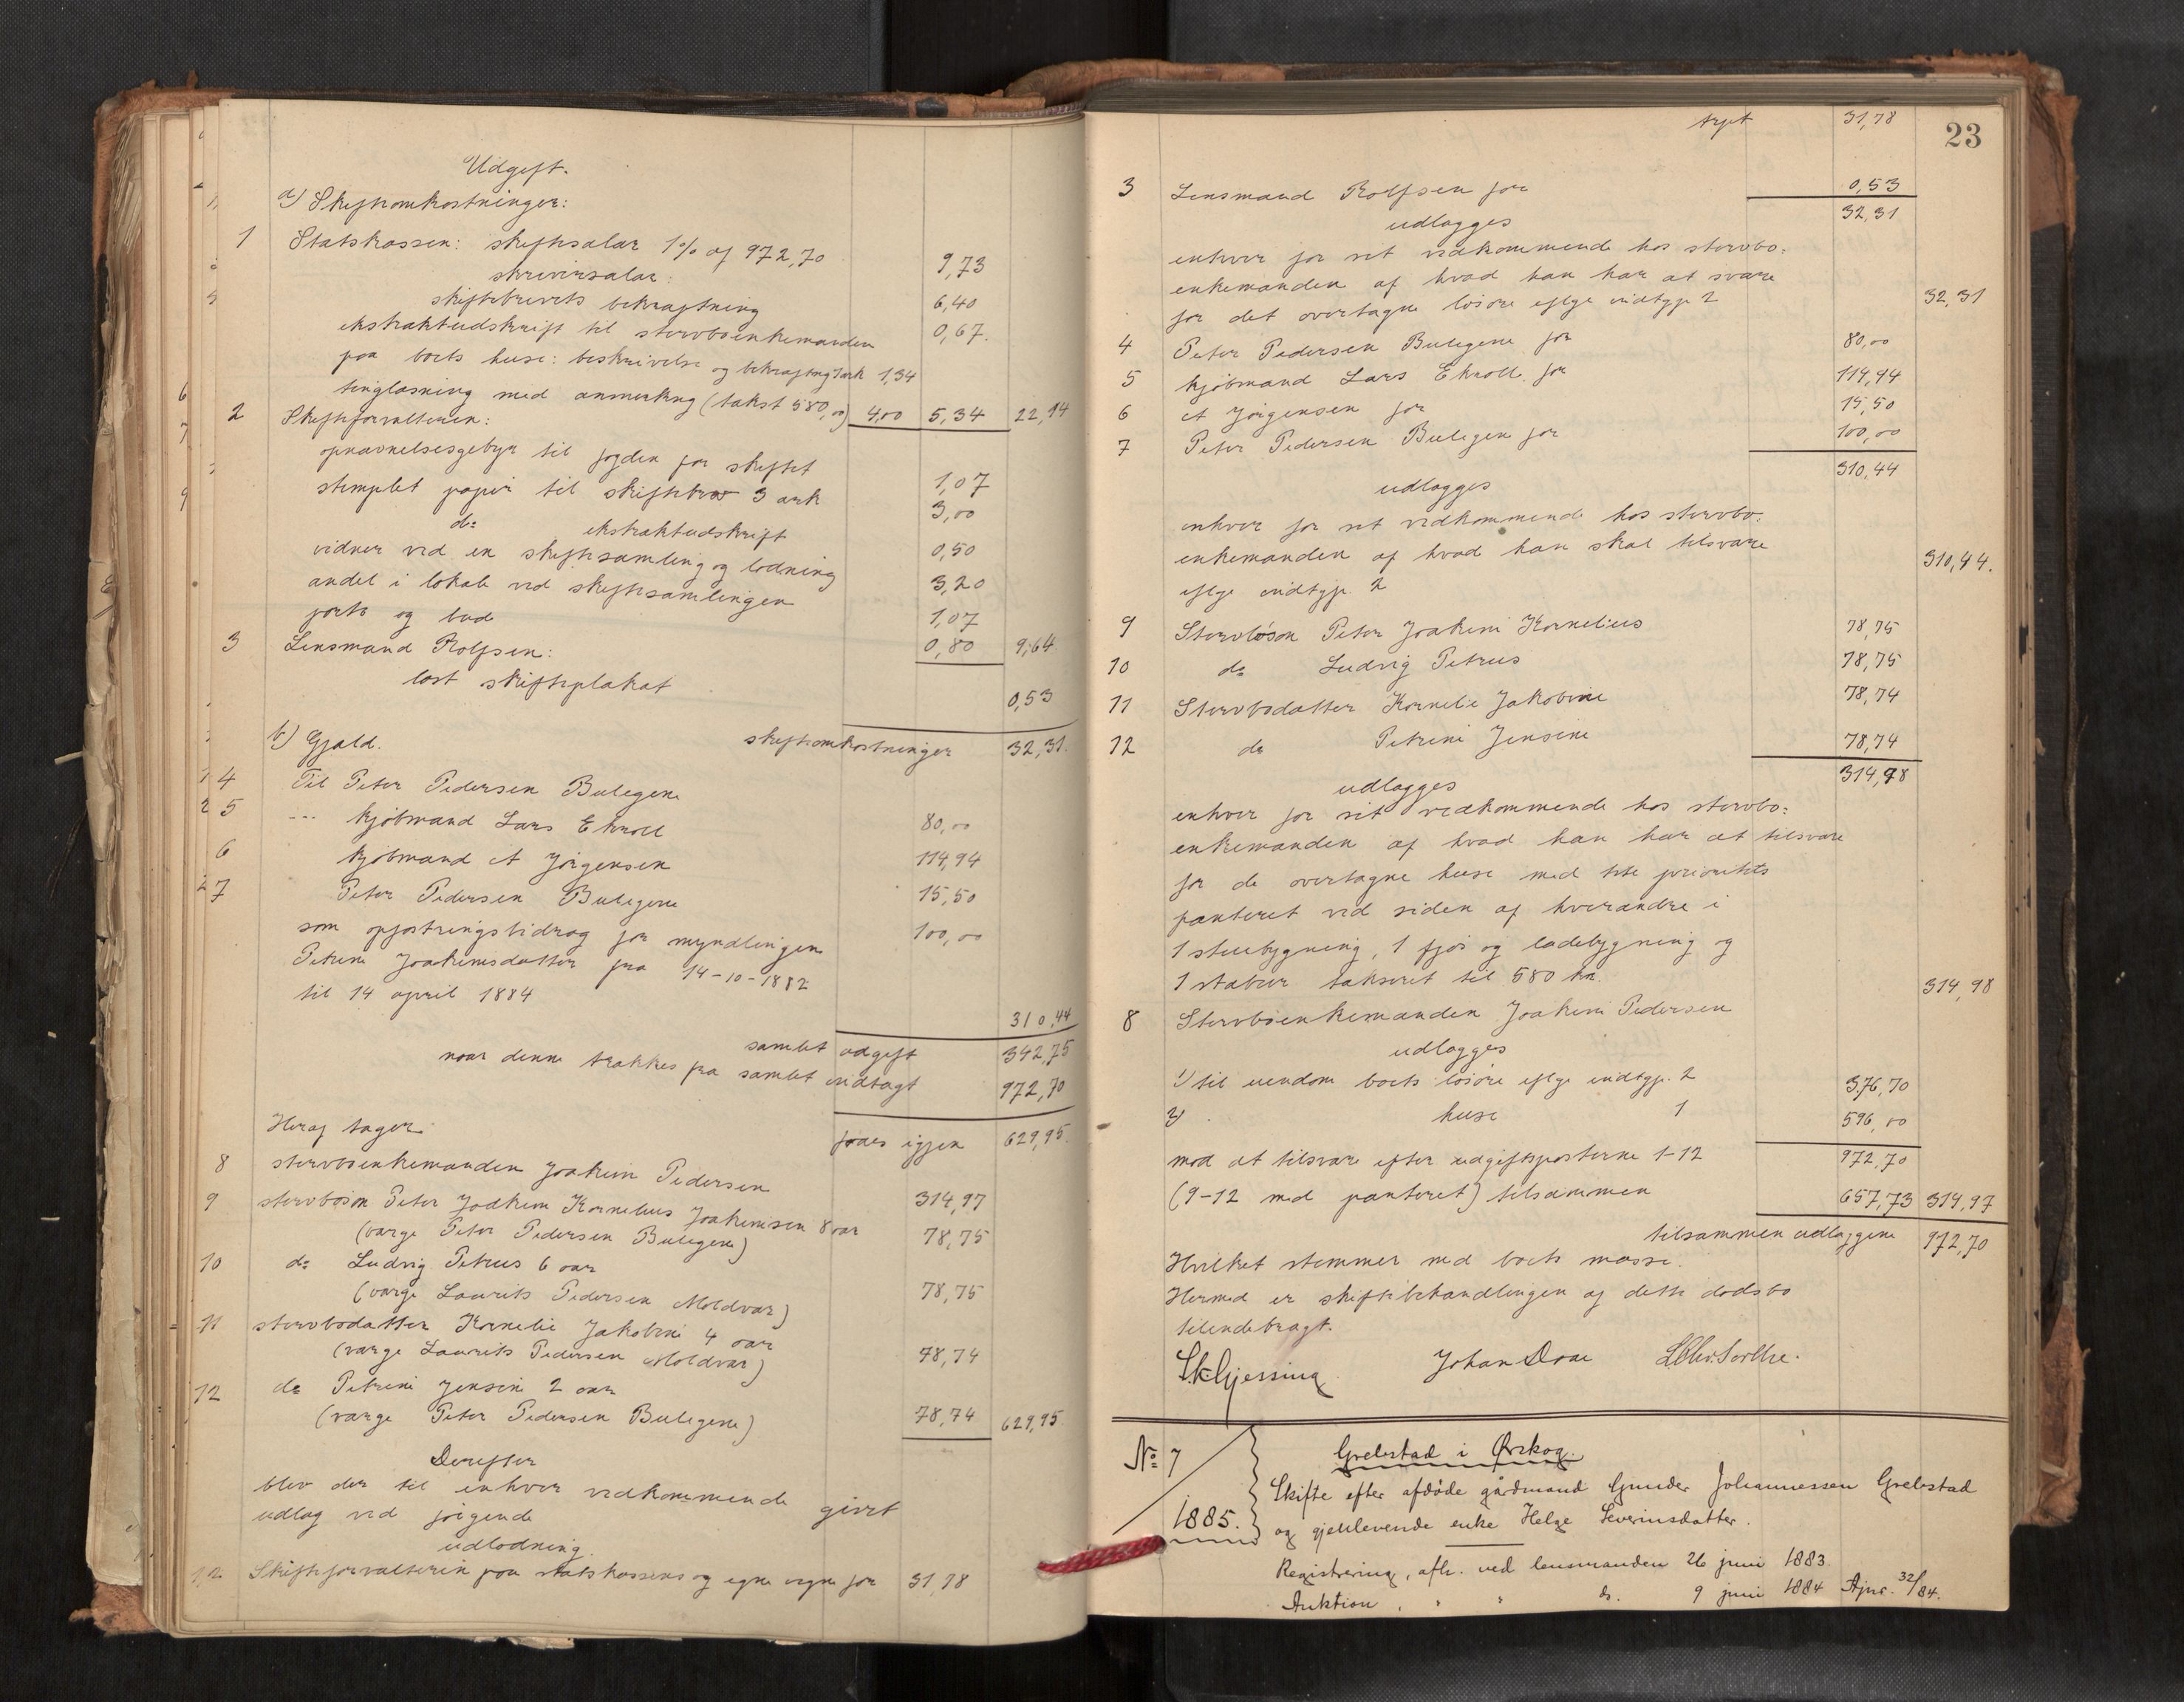 Udgift.
a) Skifteomkostninger:
1 Statskassen: skiftesalær 1% af 972,70 9,73
skriversalær:
skiftebrevets bekræftning 6,40
ekstraktudskrift til stervboenkemanden 0,67.
paa boets huse: beskrivelse og bekræftng 2ark 1,34
tinglæsning med anmerkng (takst 580,00) 4,00 5,34 22,14
2 Skifteforvalteren:
opnævnelsesgebyr til fogden for skiftet 1,07
stemplet papir til skiftebrev 3 ark 3,00
do ekstraktudskrift 0,50
vidner ved en skiftesamling og lodning 3,20
andel i lokale ved skiftesamlingen 1,07
porto og bud 0,80 9,64
3 Lensmand Rolfsen:
læst skifteplakat 0,53
skifteomkostninger 32,31.
b) Gjæld.
4 Til Peter Pedersen Bulegene 80,00
5 --- kjøbmand Lars Ekroll 114,94
6 kjøbmand A Jørgensen 15,50
7 Peter Pedersen Bulegene 100,00
som opfostringsbidrag for myndlingen
Petrine Joakimsdatter fra 14-10-1882
til 14 april 1884
310,44
samlet udgift 342,75
naar denne trækkes fra samlet indtægt 972,70
faaes igjen 629,95.
Heraf tager:
8 stervboenkemanden Joakim Pedersen 314,97
9 stervbosøn Peter Joakim Kornelius Joakimsen 8 aar 78,75
(værge Peter Pedersen Bulegene)
10 do Ludvig Petrus 6 aar 78,75
(værge Laurits Pedersen Moldvær)
11 stervbodatter Kornelie Jakobine 4 aar 78,74
(værge Laurits Pedersen Moldvær)
12 do Petrine Jensine 2 aar
(værge Peter Pedersen Bulegene) 78,74 629,95
Derefter
blev der til enhver vedkommende givet
udlæg ved følgende
udlodning.
1,2 Skifteforvalteren paa statskassens og egne vegne for 31,78
23
trpt 31,78
3 Lensmand Rolfsen for 0,53
32,31
udlægges
enhver for sit vedkommende hos stervbo-
enkemanden af hvad han har at svare
for det overtagne løsøre iflge indtgp 2 32,31
4 Peter Pedersen Bulegene for 80,00
5 kjøbmand Lars Ekroll for 114,94
6 A Jørgensen for 15,50
7 Peter Pedersen Bulegene for 100,00
310,44
udlægges
enhver for sit vedkommende hos stervbo-
enkemanden af hvad han skal tilsvare
iflge indtgp. 2 310,44.
9 Stervbosøn Peter Joakim Kornelius 78,75
10 do Ludvig Petrus 78,75
11 Stervbodatter Kornelie Jakobine 78,74
12 do Petrine Jensine 78,74
314,98
udlægges
enhver for sit vedkommende hos stervbo-
enkemanden af hvad han har at tilsvare
for de overtagne huse med 1ste prioritets
panteret ved siden af hverandre i
1 stuebygning, 1 fjøs og ladebygning og
1 stabur takseret til 580 kr. 314,98
8 Stervboenkemanden Joakim Pedersen
udlægges
1) til eiendom boets løsøre iflge indtgp. 2 376,70
2) huse 1 596,00
972,70
mod at tilsvare efter udgiftsposterne 1-12
(9-12 med panteret) tilsammen 657,73 314,97
tilsammen udlæggene 972,70
Hvilket stemmer med boets masse.
Hermed er skiftebehandlingen af dette dødsbo
tilendebragt.
Gjessing Johan Doae
No 7
1885.
Grebstad i Ørskog.
Skifte efter afdøde gårdmand Gunder Johannessen Grebstad
og gjenlevende enke Helge Severinsdatter.
Registrering, afh. ved lensmanden 26 juni 1883.
Auktion " " do. 9 juni 1884 Ajnr. 32/84.